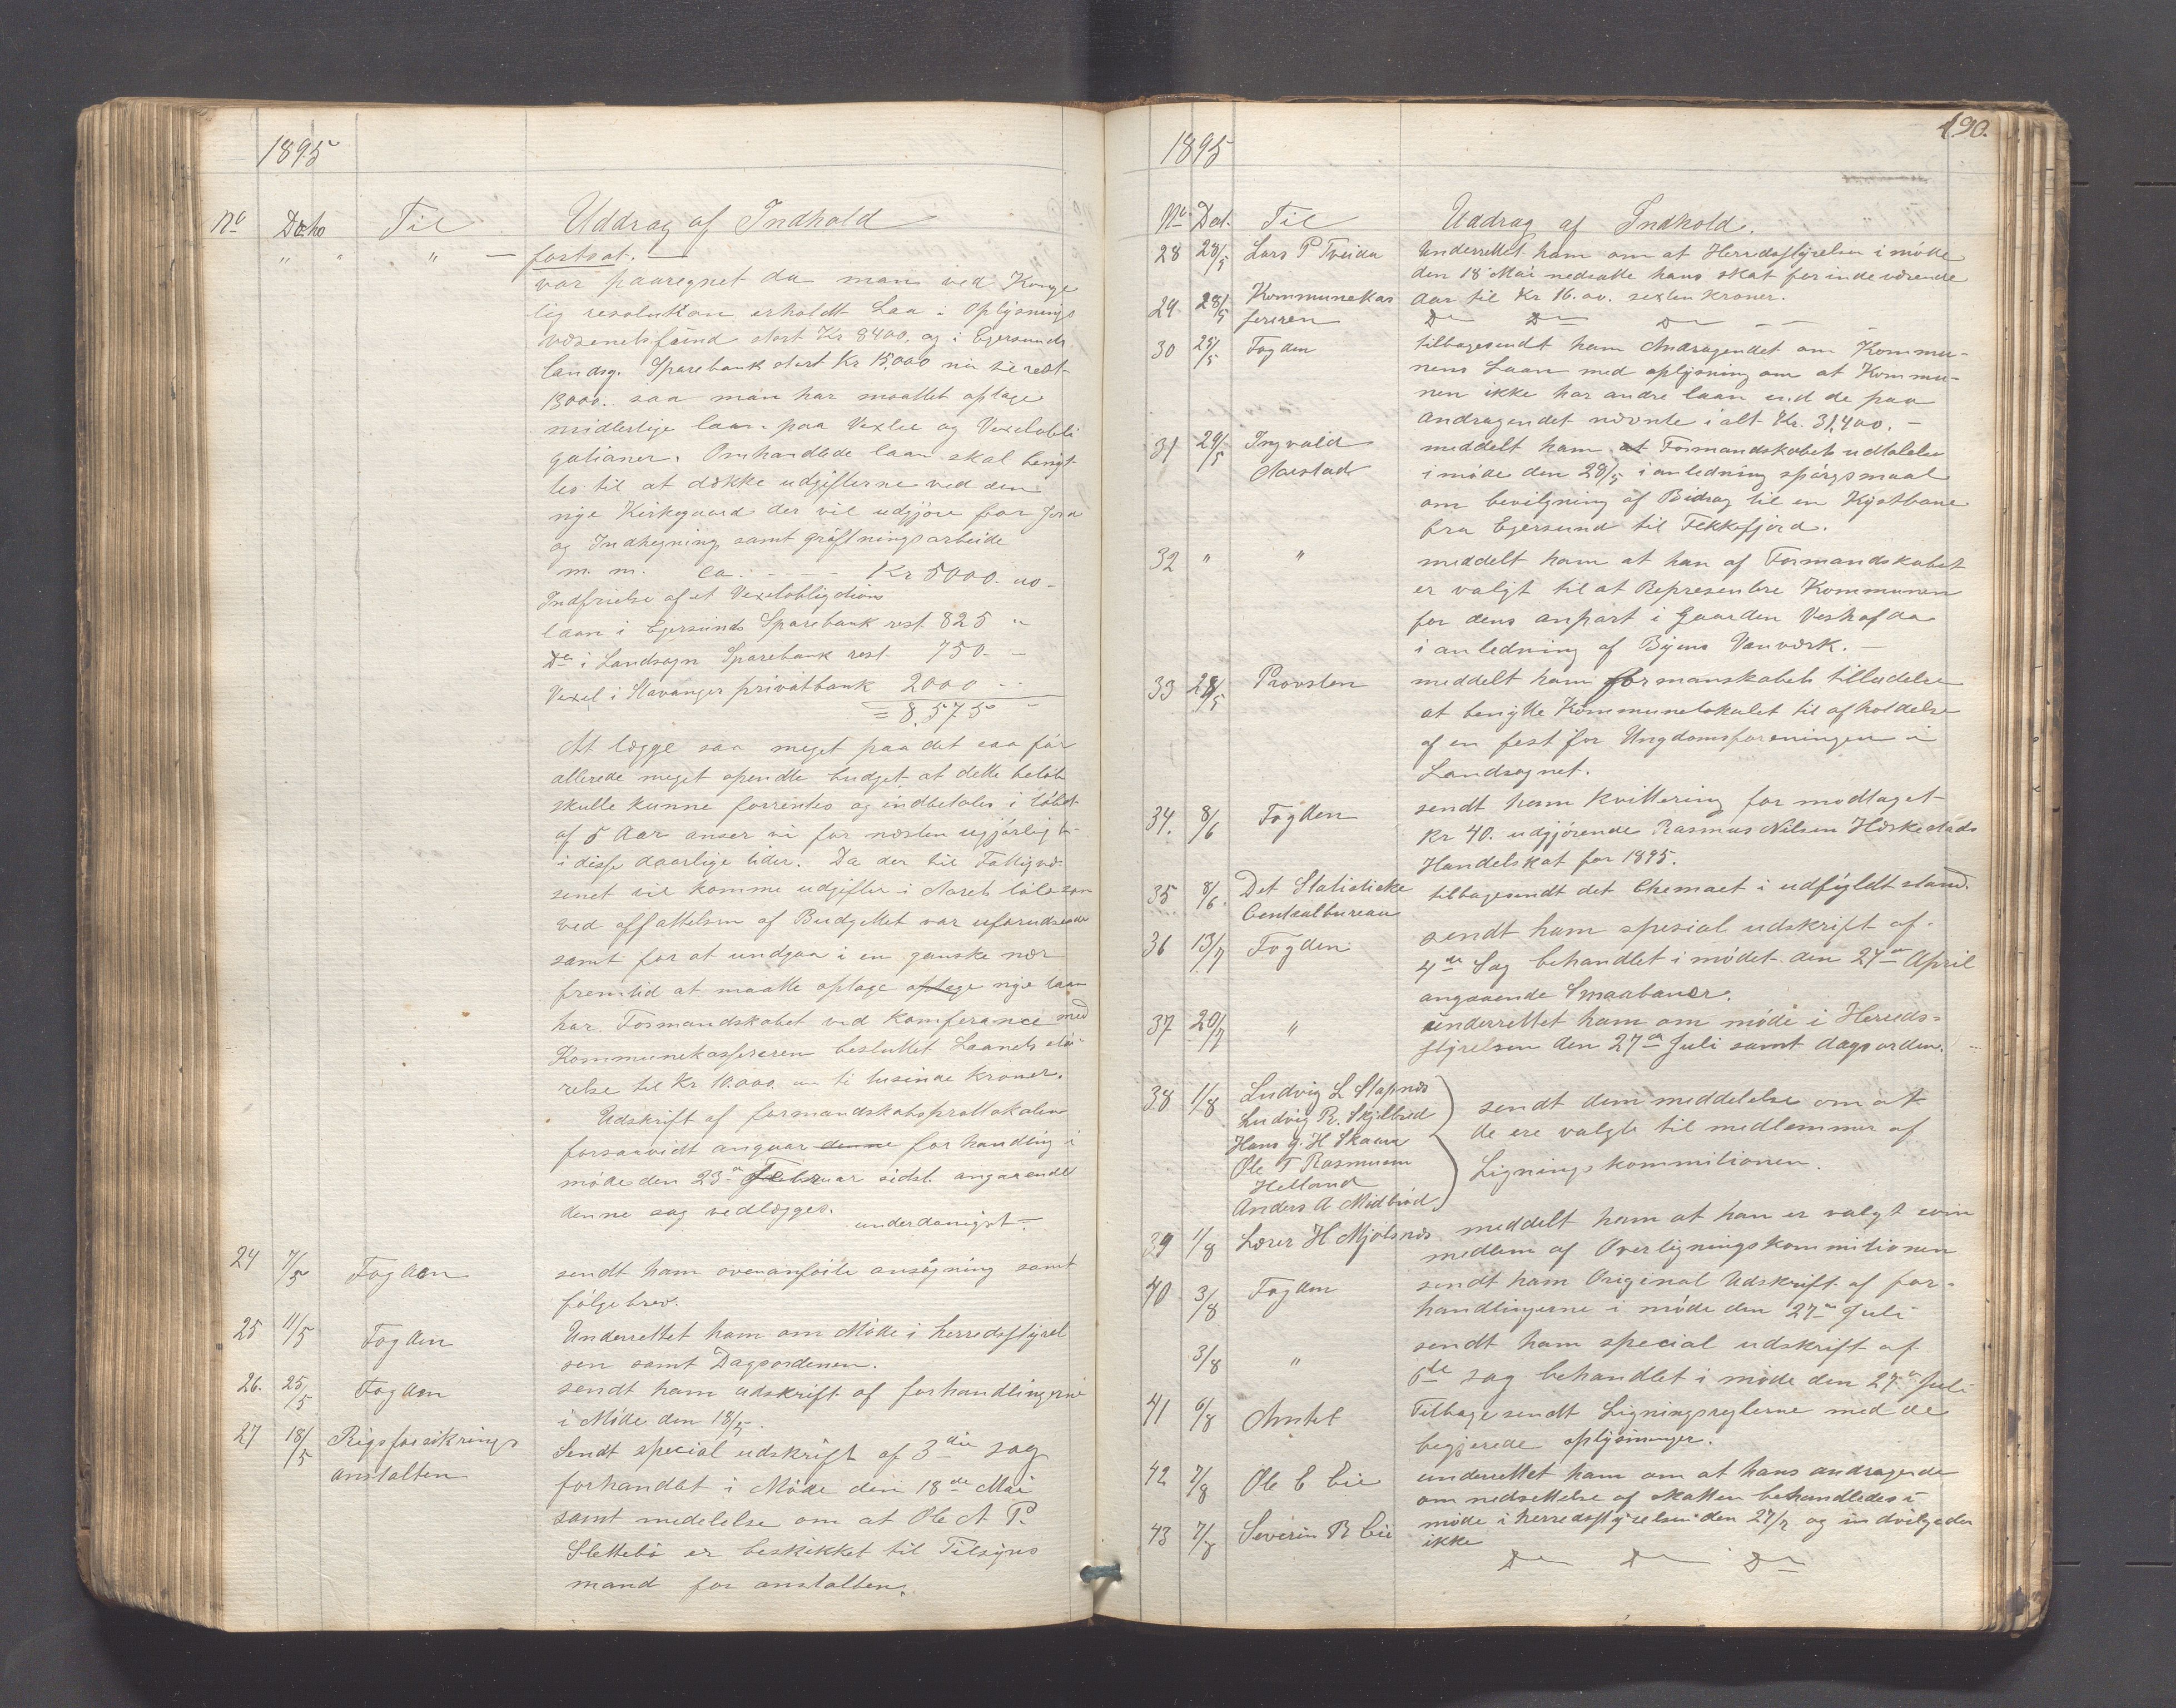 1895
No Dato Til Uddrag af Indhold
" " " — fortsat. —
var paaregnet da man ved Konge
lig resolution erholdt Laan i Oplysnings
væsenets fund stort Kr 8400. og i Egersunds
landsg. Sparebank stort Kr 15,000 nu til rest
13000. saa man har maattet optage
midlertige laan paa Vexler og Vexelobli
gationer. Omhandlede laan skal benyt
tes til at dække udgifterne ved den
nye Kirkegaard der vil udgjøre for Jord
og Indhegning samt grøftningsarbeide
m. m. ca. - - - - Kr 5000. 00 -
Indfrielse af et Vexelobligations
laan i Egersunds Sparebank rest 825 "
Do i Landsogn Sparebank rest 750. -
Vexel i Stavanger privatbank 2000 - -
= 8,575 -
At lægge saa meget paa det saa før
allerede meget spendte budget at dette beløb
skulle kunne forrentes og indbetales i løbet
af 5 Aar anser vi for næsten ugjørligt
i disse daarlige tider. Da der til Fattigvæ
senet vil komme udgifter i Aarets løb som
ved affattelsen af Budgettet var uforudseede
samt for at undgaa i en ganske nær
fremtid at maatte optage optage nye laan
har Formandskabet ved Konferance med
Kommunekassereren besluttet Laanets stø-
relse til Kr 10.000. ti tusinde kroner.
Udskrift af formandskabsprottokolen
forsaavidt angaar denne forhandling i
møde den 23de Februar sidst. angaaende
denne sag vedlægges.
underdanigst —
24 7/5 Fogden sendt ham ovenanførte ansøgning samt
følgebrev.
25 11/5 Fogden Underrettet ham om Møde i herredsstyrel
sen samt Dagsordenen.
26. 25/5 Fogden sendt ham udskrift af forhandlingerne
i Møde den 18/5.
27 18/5 Rigsforsikrings Sendt special udskrift af 3die sag
anstalten forhandlet i Møde den 18de Mai
samt medelelse om at Ole A P.
Slettebø er beskikket til Tilsyns
mand for anstalten.
190.
1895
No Dat. Til Uddrag af Indhold.
28 28/5 Lars P Tveida Underrettet ham om at Herredsstyrelsen i møde
den 18 Mai nedsatte hans skat for indeværende
Aar til Kr 16.00. sexten kroner.
29 28/5 Kommunekas
sereren Do Do Do — —
30 25/5 Fogden tilbagesendt ham Andragendet om Kommu-
nens Laan med oplysning om at Kommu-
nen ikke har andre laan end de paa
andragendet nævnte i alt Kr. 31,400. -
31 29/5 Ingvald meddelt ham at Formandskabets udtalelse
Aarstad i møde den 28/5 i anledning spørgsmaal
om bevilgning af Bidrag til en Kystbane
fra Egersund til Flekkefjord.
32 " " meddelt ham at han af Formandskabet
er valgt til at Representere Kommunen
for dens anpart i Gaarden
i anledning af Byens Vanværk. —
33 28/5 Provsten meddelt ham formanskabets tilladelse
at benytte Kommunelokalet til afholdelse
af en fest for Ungdomsforeningen i
Landsognet.
34. 8/6 Fogden sendt ham Kvittering for modtaget
Kr 40. udgjørende Rasmus Nilsen Heskestads
Handelskat for 1895.
35 8/6. Det Statistiske tilbagesendt det Chemaet i udfyldt stand.
Centralbureau
36 13/7 Fogden sendt ham spesial udskrift af
4de Sag behandlet i mødet den 27de April
angaaende Smaabaner.
37 20/7 " underrettet ham om møde i Hereds=
styrelsen den 27de Juli samt dagsorden.
38 1/8 Ludvig L Stapnes
Ludvig R. Skjelbred sendt dem meddelelse om at
Hans G. H Skaara de ere valgte til medlemmer af
Ole T Rasmusen
Helland Ligningskommitionen.
Anders A Midbrød
39 1/8 Lærer H Mjølsnes meddelt ham at han er valgt som
medlem af Overligningskommitionen
40 3/8 Fogden sendt ham Original Udskrift af for-
handlingerne i møde den 27de Juli
3/8 " sendt ham special udskrift af
6te sag behandlet i møde den 27de Juli
41 6/8 Amtet Tilbagesendt Ligningsreglerne med de
begjerede oplysninger.
42 7/8 Ole C Eie underrettet ham om at hans andragende
om nedsettelse af skatten behandledes i
møde i herredsstyrelsen den 27/7 og indvilgedes
ikke
43 7/8 Severin R Eie Do Do Do